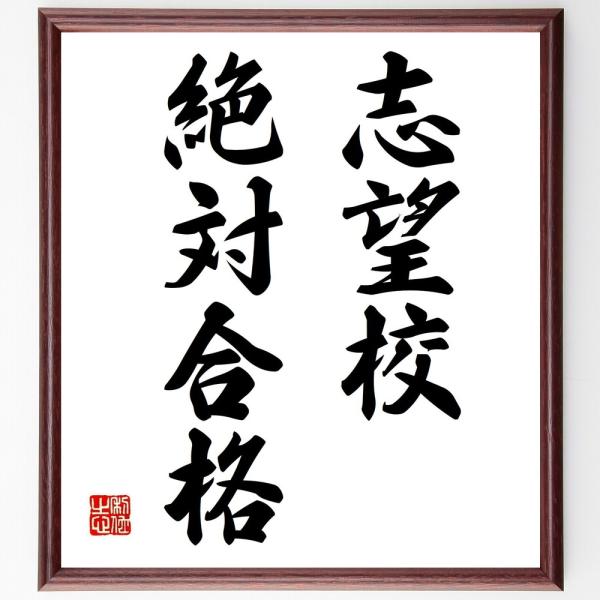 志望校
絶対合格